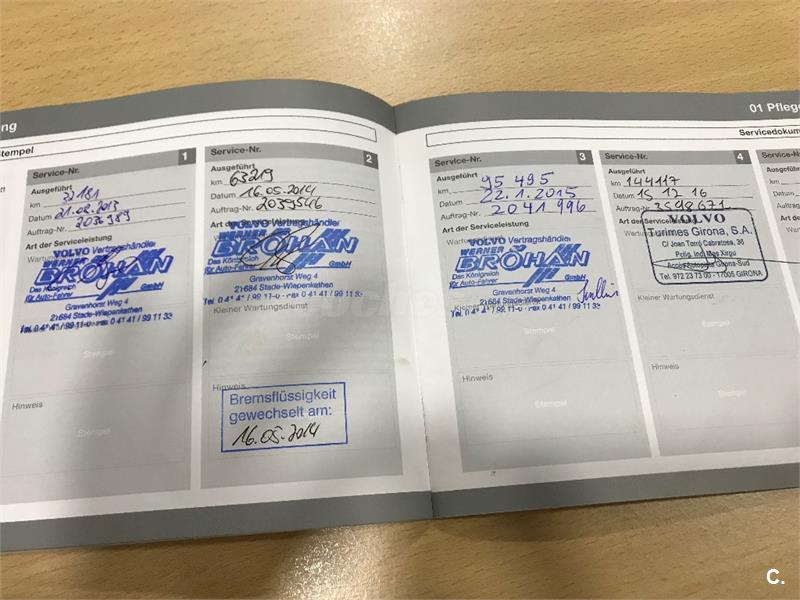 ng
01 Pflege
Stempel
Servicedokum
Service-Nr. 1
Ausgeführt
km 32181
Datum 21.08.2013
Auftrag-Nr. 2036989
Art der Serviceleistung
VOLVO Vertragshändler
WERNER
BRÖHAN
Das Königreich
für Auto-Fahrer
GmbH
Gravenhorst Weg 4
21684 Stade-Wiepenkathen
Stempel
Hinweis
Stempel
Service-Nr. 2
Ausgeführt
km 63219
Datum 16.05.2014
Auftrag-Nr. 2039546
Art der Serviceleistung
VOLVO Vertragshändler
WERNER
BRÖHAN
Das Königreich
für Auto-Fahrer
GmbH
Gravenhorst Weg 4
21684 Stade-Wiepenkathen
Kleiner Wartungsdienst
Stempel
Hinweis
Bremsflüssigkeit
gewechselt am:
16.05.2014
Service-Nr. 3
Ausgeführt
km 95 495
Datum 22.1.2015
Auftrag-Nr. 2041996
Art der Serviceleistung
VOLVO Vertragshändler
WERNER
BRÖHAN
Das Königreich
für Auto-Fahrer
GmbH
Gravenhorst Weg 4
21684 Stade-Wiepenkathen
Kleiner Wartungsdienst
Stempel
Hinweis
Stempel
Service-Nr. 4
Ausgeführt
km 144117
Datum 15 12 16
Auftrag-Nr. 3598671
Art der Serviceleistung
VOLVO
Turimes Girona, S.A.
C/ Joan Torró Cabratosa, 36
Políg. Ind. Mas Xirgu
Accés Autopista Girona-Sud
Tel. 972 23 73 00 - 17005 GIRONA
Kleiner Wartungsdienst
Stempel
Hinweis
Stempel
Service-
Ausgeführt
km
Datum
Auftrag-N
Art der S
Hinwe
C.